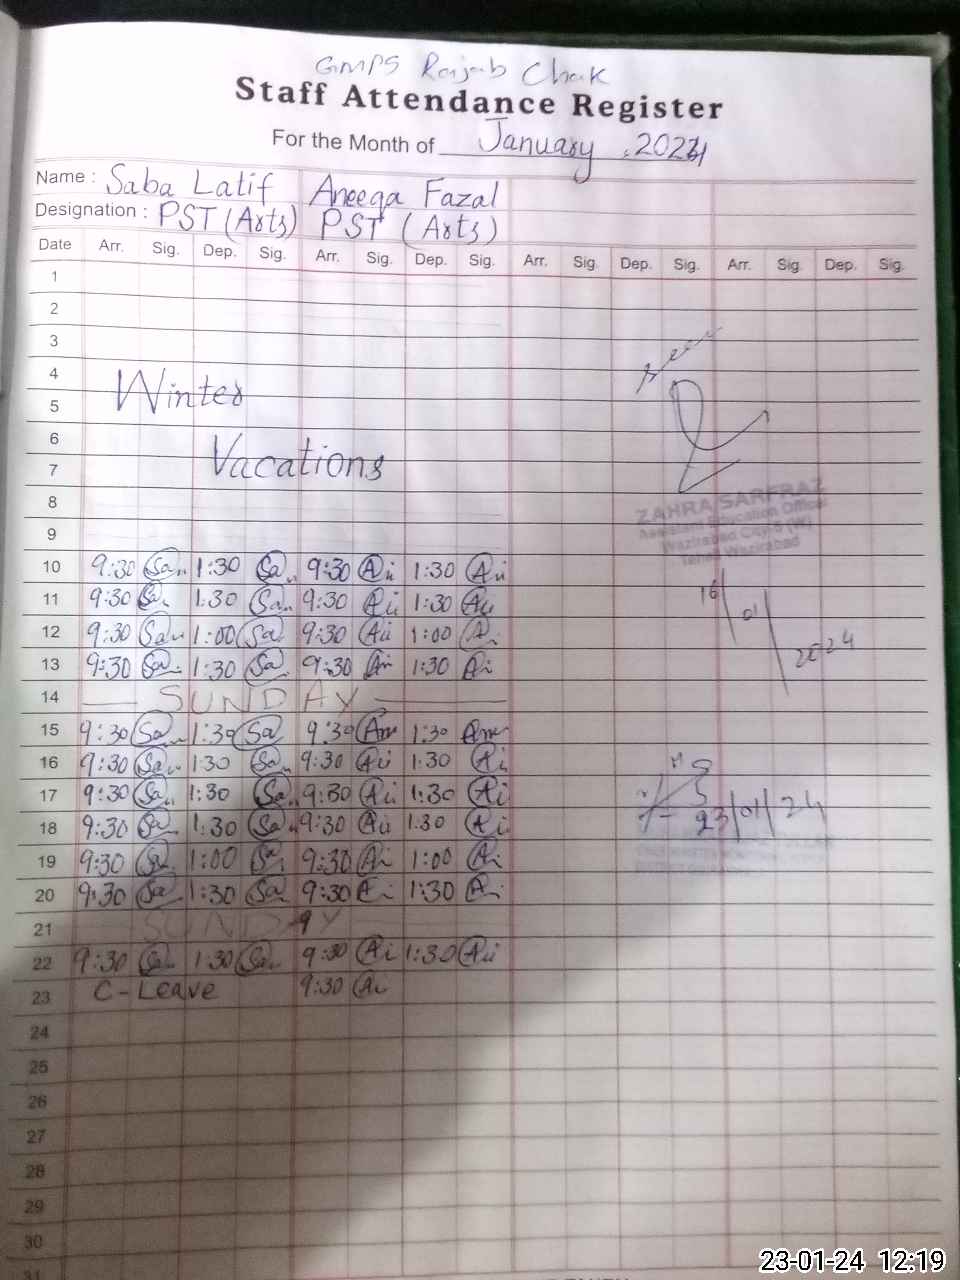 GMPS Rajab Chak
Staff Attendance Register
For the Month of January, 2024
Name : Saba Latif Aneeqa Fazal
Designation : PST (Arts) PST (Arts)
Date Arr. Sig. Dep. Sig. Arr. Sig. Dep. Sig. Arr. Sig. Dep. Sig. Arr. Sig. Dep. Sig.
1
2
3
4
Winter
5
6
7
Vacations
8
ZAHRA SARFRAZ
Assistant Education Officer
9
Wazirabad City-6 (W)
Tehsil Wazirabad
10 9:30 1:30 9:30 1:30
11 9:30 1:30 9:30 1:30
16/01/2024
12 9:30 1:00 9:30 1:00
13 9:30 1:30 9:30 1:30
14 SUNDAY
15 9:30 1:30 9:30 1:30
16 9:30 1:30 9:30 1:30
17 9:30 1:30 9:30 1:30
18 9:30 1:30 9:30 1:30 23/01/24
19 9:30 1:00 9:30 1:00
20 9:30 1:30 9:30 1:30
21 SUNDAY
22 9:30 1:30 9:30 1:30
23 C-Leave 9:30
24
25
26
27
28
29
30
31
23-01-24 12:19